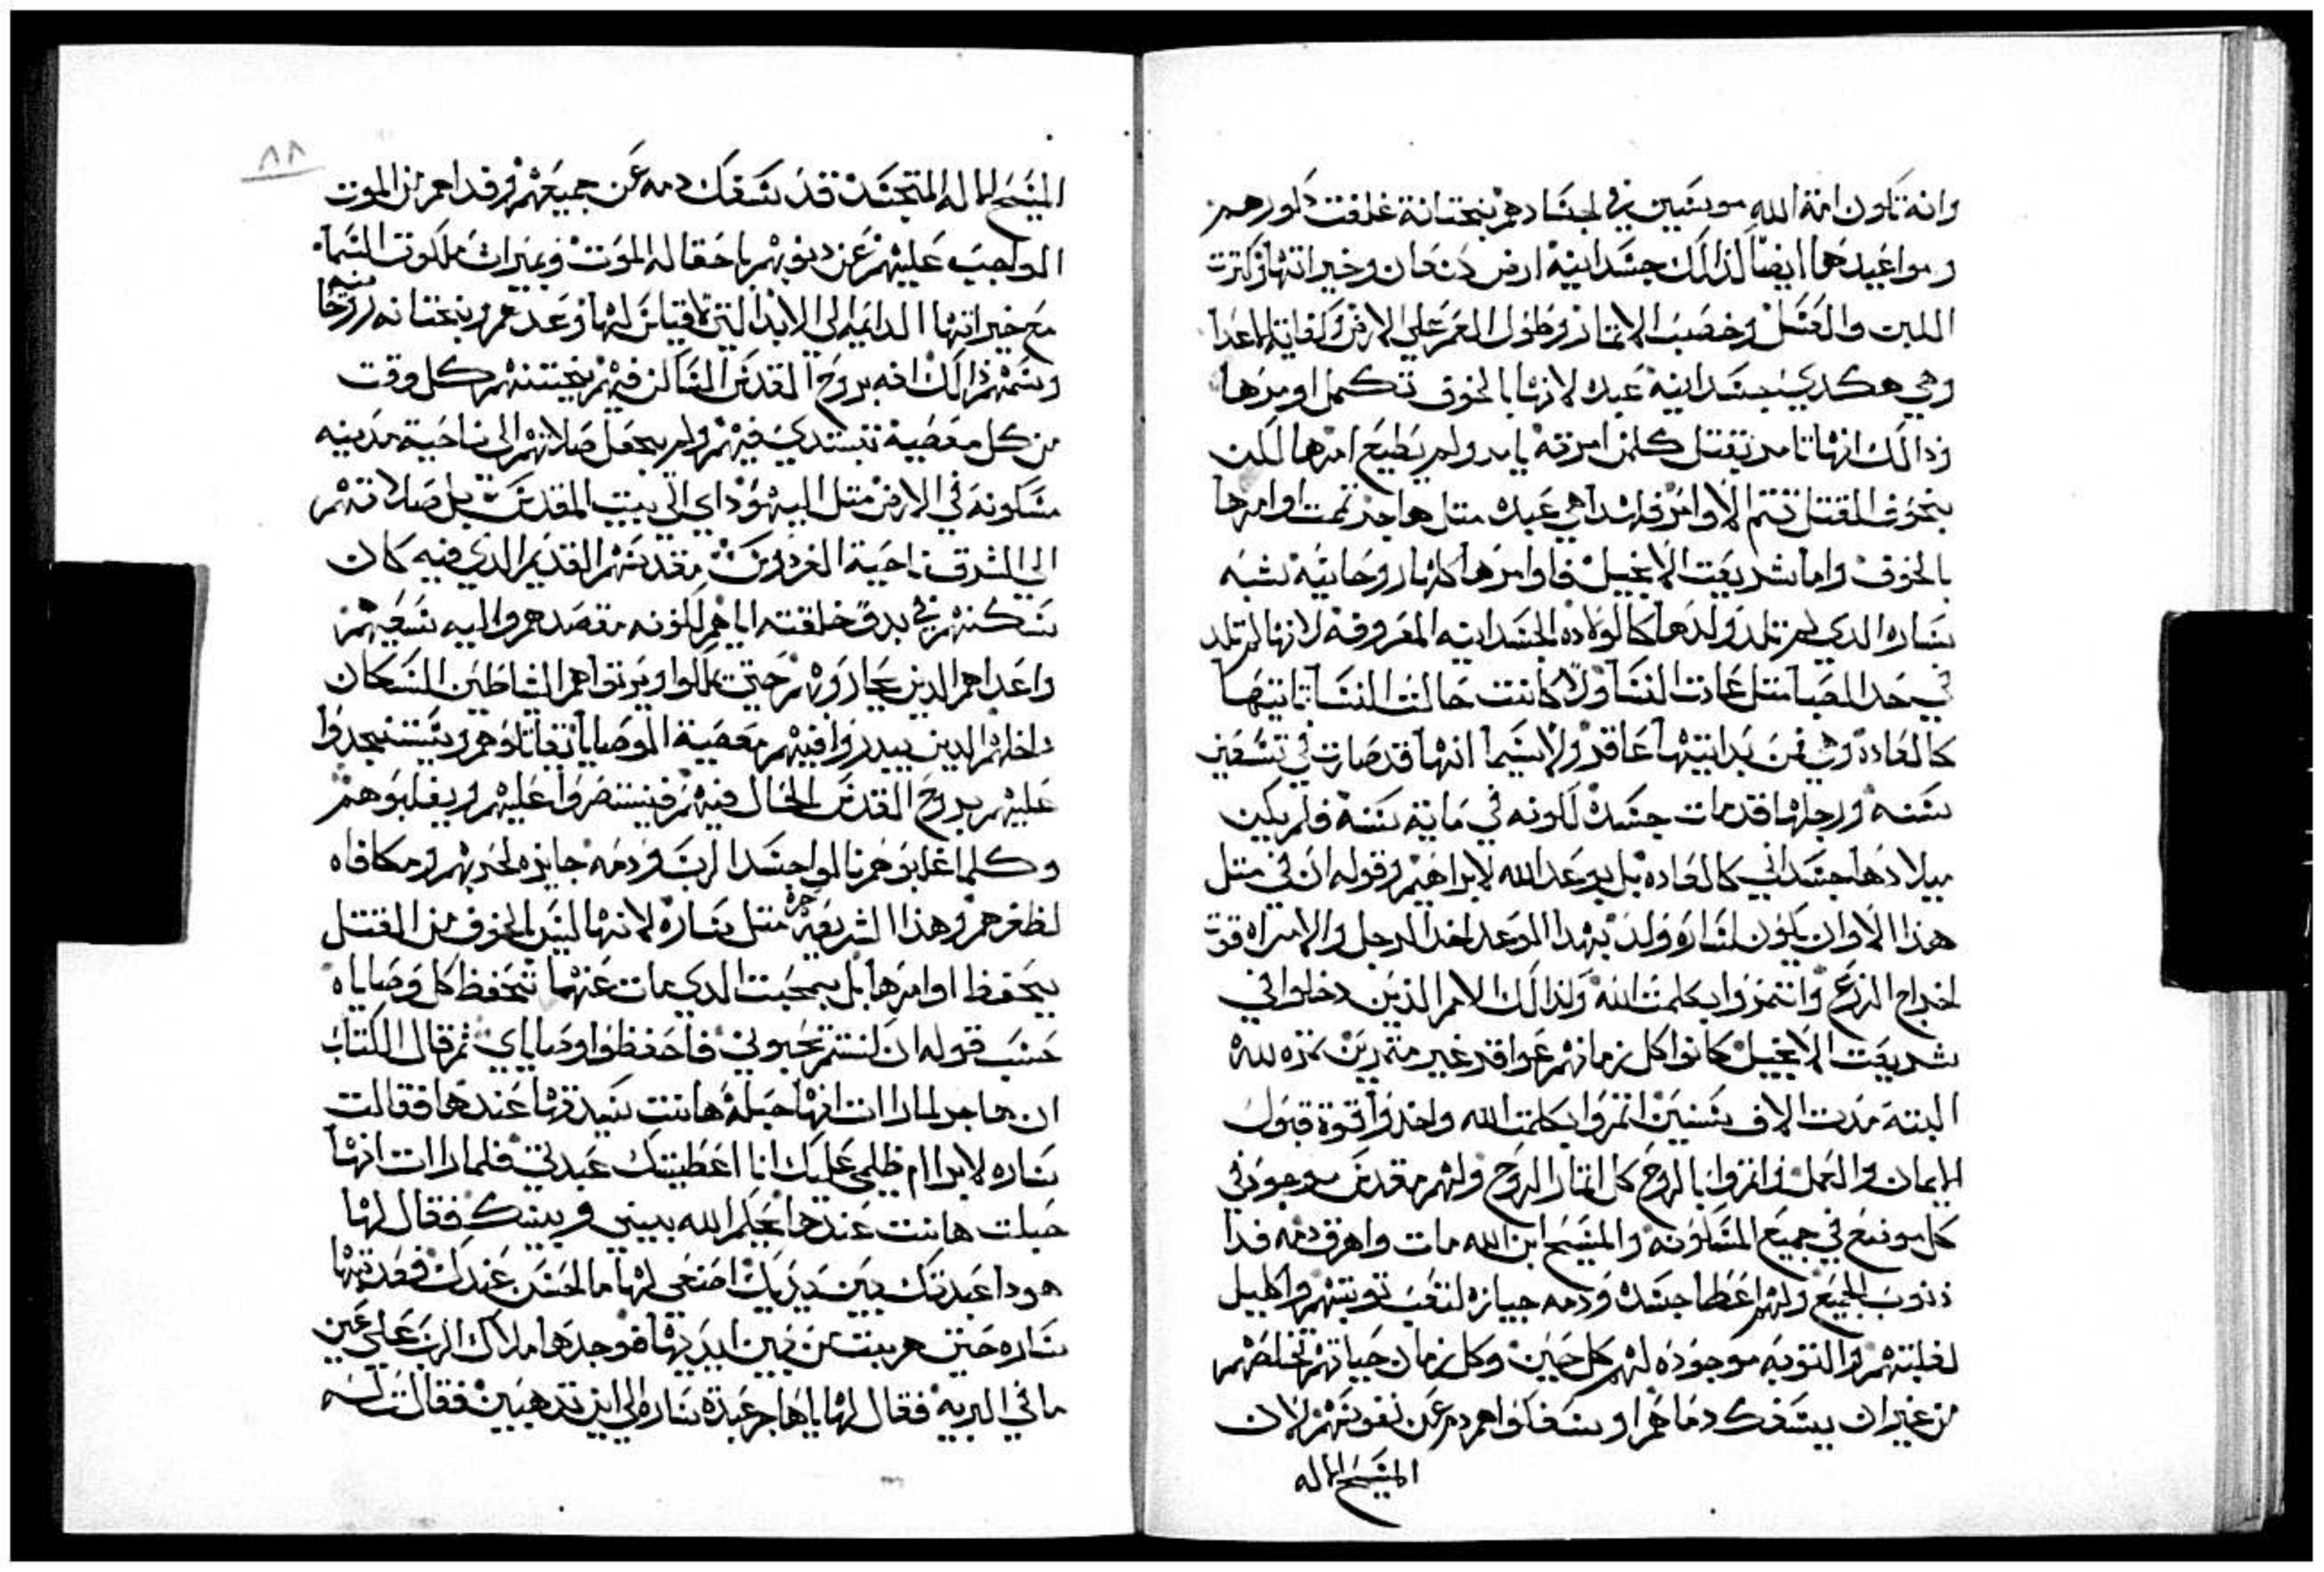 وانه تكون امة الله موسين في اجسادهم بختانة غلفت دكورهم
ومواعيدهما ايضا لذالك جسدانيه ارض كنعان وخيراتها وكترت
اللبن والعسل وخصب الاتمار وطول العمر على الارض وكفاية الاعدا
وهي هكدي بجسدانيه عبده لانها بالخوف تكمل اومرها
وذالك انها تامر بقتل كلمن امرته يامر ولم يطيع امرها لكن
بخوف القتل تتم الاوامر فلهدا هي عبده متل هاجر تمت اوامرها
بالخوف واما شريعت الانجيل فاوامرها كلها روحانيه تشبه
ساره الدي لم تلد ولدها كالولاده الجسدانيه المعروفه لانها لم تلد
في حد الصبا متل عادت النسا ولا كانت حالت النسا تاتيها
كالعاده وهي من بدايتها عاقر ولاسيما انها قد صارت في تسعين
سنه ورجلها قد مات جسده لكونه في ماية سنة فلم يكن
ميلادها جسداني كالعاده بل بوعد الله لابراهيم وقوله ان في متل
هذا الاوان يكون لساره ولد بهدا الموعد اخد الرجل والامراه قوة
اخراج الزرع وانتمروا بكلمت الله ولذالك الامم الذين دخلوا في
شريعت الانجيل كانوا كل زمانهم عواقر غير متمرين تمره لله
البته مدت الاف سنين اتمروا بكلمت الله واخدوا قوة قبول
الايمان والعمل واتمروا بالروح كل اتمار الروح ولهم مقدس موجود في
كل موضع في جميع المسكونه والمسيح ابن الله مات واهرق دمه فدا
ذنوب الجميع ولهم اعطا جسده ودمه جيازه لتعب توبتهم واكليل
لغلبتهم والتوبه موجوده لهم كل حين وكل زمان حياتهم تخلصهم
من غير ان يسفك دماهم او سفكوا هم دم عن نفوسهم لان
المسيح الاله
٨٨
المسيح الاله المتجسد قد سفك دمه عن جميعهم وفداهم من الموت
الواجب عليهم عن دنوبهم باحقاله الموت وبميرات ملكوت السما
مع خيراتها الدايمه الى الابد التي لاقياس لها وعدهم وبختانه روحا نيه
وسمهم ذالك انه بروح القدس الساكن فيهم بختنهم كل وقت
من كل معصية تبتدي فيهم ولم يجعل صلاتهم الى ناحية مدينه
مسكونه في الارض متل اليهود اي الى بيت المقدس بل صلاتهم
الى الشرق ناحية الفردوس مقدسهم القديم الدي فيه كان
سكنهم في بدو خلقته اياهم لكونه مقصدهم واليه سعيهم
واعداهم الدين يحاربوهم حتى يكملوا ويرتوا هم الشاطين السكان
داخلهم الدين يبدروا فيهم معصية الوصايا تقاتلوهم ويستنجدوا
عليهم بروح القدس الحال فيهم فينتصروا عليهم ويغلبوهم
وكلما غلبوهم نالوا جسد الرب ودمه جايزه لحربهم ومكافاه
لظفرهم وهذا الشريعه حره متل ساره لانها ليس بالخوف من القتل
يحفظ اوامرها بل بمحبت الدي مات عنهما نحفظ كل وصاياه
حسب قوله ان كنتم تحبوني فاحفظوا وصاياي تم قال الكتاب
ان هاجر لما رات انها حبله هانت سيدتها عندها فقالت
ساره لابراام ظلمي عليك انا اعطيتك عبدتي فلما رات انها
حبلت هانت عندها يحكم الله بيني وبينك فقال لها
هودا عبدتك بين يديك اصنعي لها ما الحسن عندك فعدبتها
ساره حتى هربت من بين ايديها فوجدها ملاك الرب على عين
ما في البريه فقال لها ياهاجر عبدة ساره الى اين تدهبين فقالت له